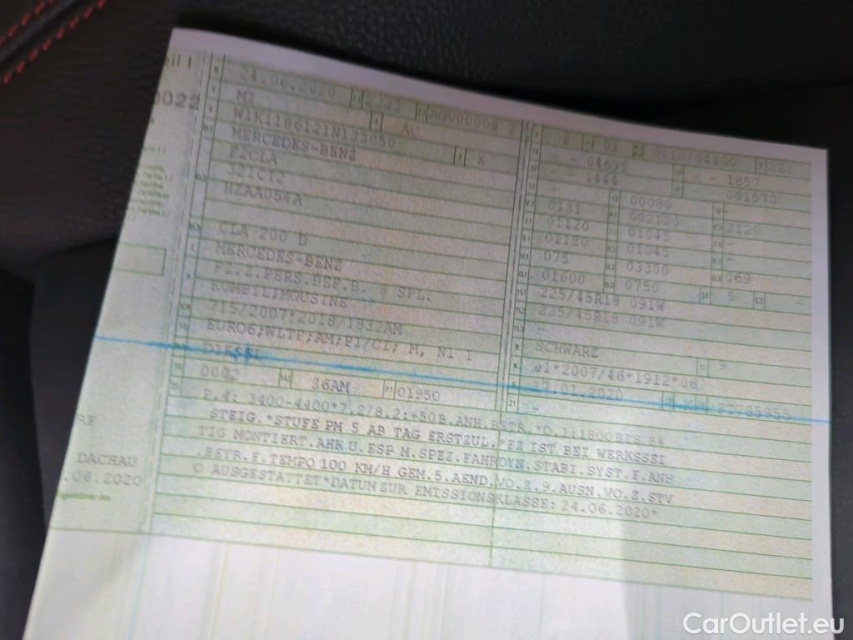 24.06.2020
0022
M1 AC
MERCEDES-BENZ
F2CLA
CLA 200 D
MERCEDES-BENZ
FZ.Z.PERS.BEF.B. 8 SPL.
KOMBILIMOUSINE
715/2007*2018/1832AM
EURO6;WLTP;AM;PI/CI; M, N1 I
DIESEL
0002 36AM 01950
04695
1444
0131 00090
01120 002120 2120
01120 01045
075 01045
01600 03300 069
0750 5
225/45R18 091W
225/45R18 091W
SCHWARZ
e1*2007/46*1912*06
17.01.2020 K
P.4: 3400-4400*7.2/8.2:+50B.ANH.BETR.*O.1:1800BIS 8%
STEIG.*STUFE PM 5 AB TAG ERSTZUL.*FZ IST BEI WERKSSEI
TIG MONTIERT.AHK U.ESP M.SPEZ.FAHRDYN.STABI.SYST.F.ANH
.BETR.F.TEMPO 100 KM/H GEM.5.AEND.VO.Z.9.AUSN.VO.Z.STV
O AUSGESTATTET*DATUM ZUR EMISSIONSKLASSE: 24.06.2020*
DACHAU
.06.2020
CarOutlet.eu